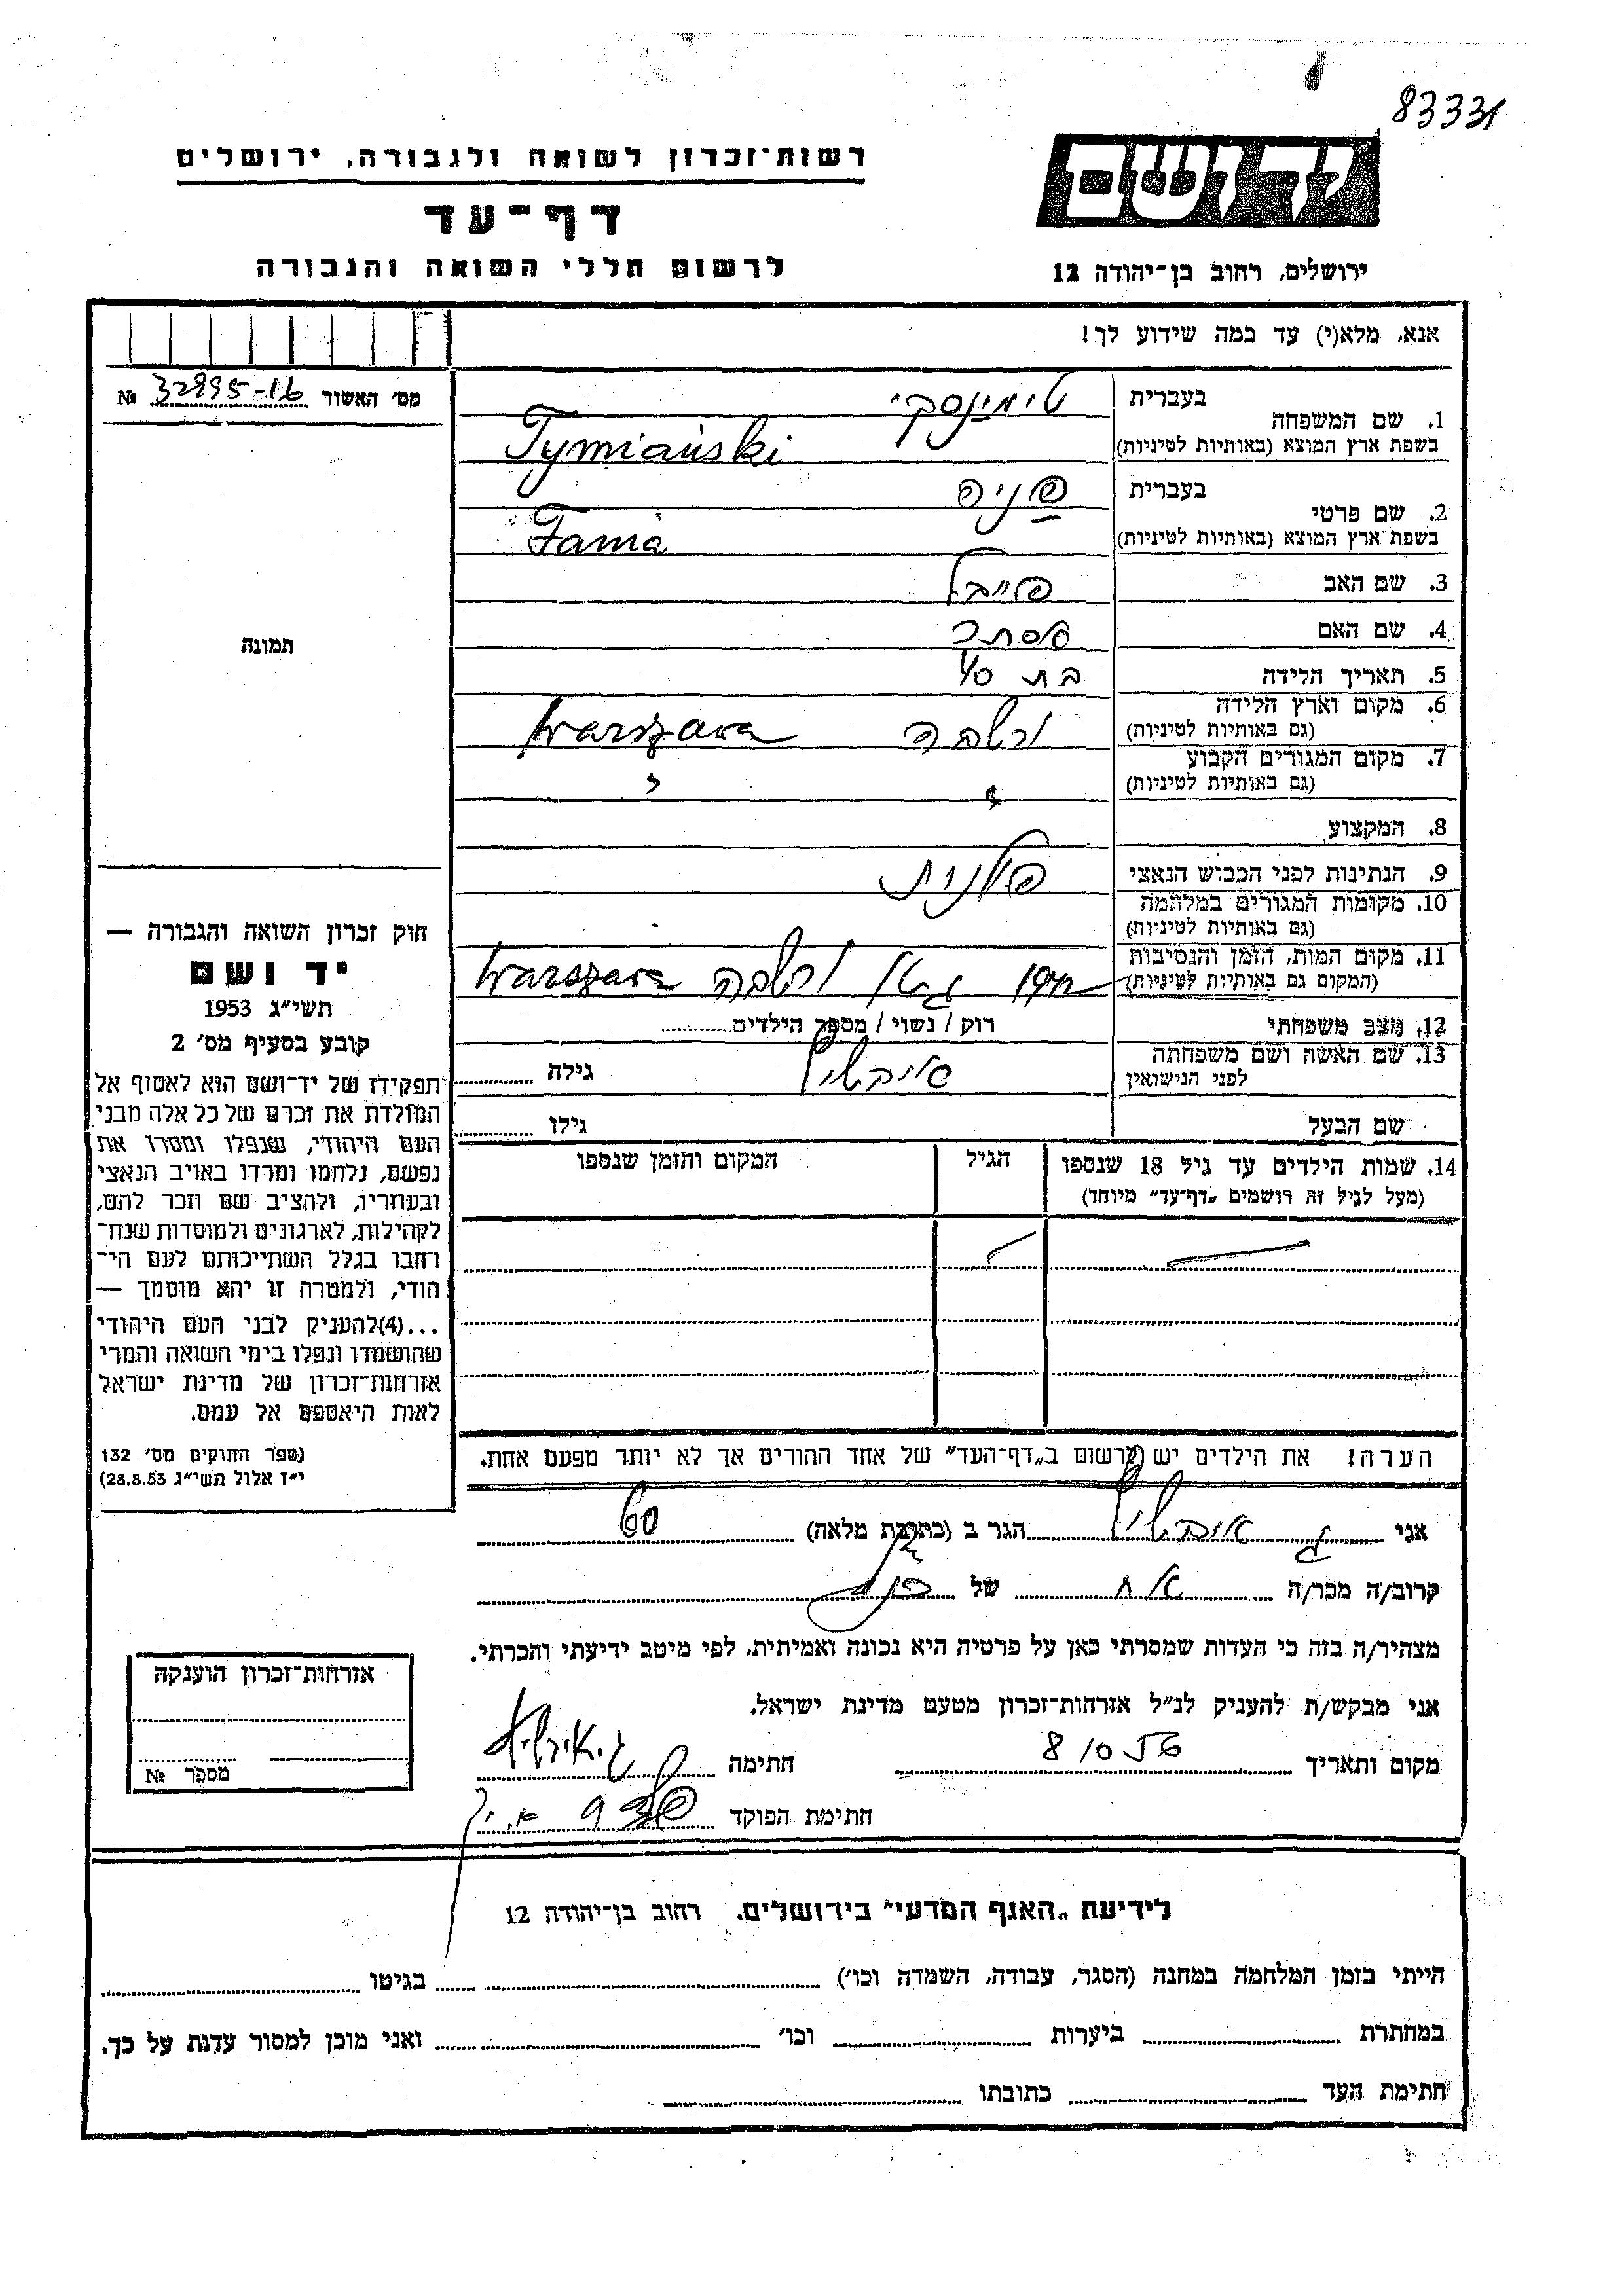 83331
רשות־זכרון לשואה ולגבורה, ירושלים
יד ושם
דף־עד
לרשום חללי השואה והגבורה
ירושלים, רחוב בן־יהודה 12
אנא, מלא(י) עד כמה שידוע לך!
מס׳ האשור № 32995-16
1. שם המשפחה בעברית טימינסקי
בשפת ארץ המוצא (באותיות לטיניות) Tymiański
2. שם פרטי בעברית פניה
בשפת ארץ המוצא (באותיות לטיניות) Fania
3. שם האב פייבל
4. שם האם אסתר
5. תאריך הלידה בת 40
6. מקום וארץ הלידה (גם באותיות לטיניות) ורשה Warszawa
7. מקום המגורים הקבוע (גם באותיות לטיניות) " "
8. המקצוע
9. הנתינות לפני הכבוש הנאצי פולנית
10. מקומות המגורים במלחמה (גם באותיות לטיניות)
11. מקום המות, הזמן והנסיבות (המקום גם באותיות לטיניות) גיטו ורשה Warszawa
12. מצב משפחתי רוק / נשוי / מספר הילדים
13. שם האשה ושם משפחתה לפני הנישואין גילה
שם הבעל גילו
14. שמות הילדים עד גיל 18 שנספו הגיל המקום והזמן שנספו
(מעל לגיל זה רושמים „דף־עד” מיוחד)
הערה! את הילדים יש לרשום ב„דף־העד” של אחד ההורים אך לא יותר מפעם אחת.
תמונה
חוק זכרון השואה והגבורה —
יד ושם
תשי״ג 1953
קובע בסעיף מס׳ 2
תפקידו של יד־ושם הוא לאסוף אל
המולדת את זכרם של כל אלה מבני
העם היהודי, שנפלו ומסרו את
נפשם, נלחמו ומרדו באויב הנאצי
ובעוזריו, ולהציב שם וזכר להם,
לקהילות, לארגונים ולמוסדות שנח־
רחבו בגלל השתייכותם לעם הי־
הודי, ולמטרה זו יהא מוסמך —
...(4)להעניק לבני העם היהודי
שהושמדו ונפלו בימי השואה והמרי
אזרחות־זכרון של מדינת ישראל
לאות היאספם אל עמם.
(ספר החוקים מס׳ 132
י״ז אלול תשי״ג 28.8.53)
אני הגר ב (כתובת מלאה)
קרוב/ה מכר/ה אח של
מצהיר/ה בזה כי העדות שמסרתי כאן על פרטיה היא נכונה ואמיתית, לפי מיטב ידיעתי והכרתי.
אני מבקש/ת להעניק לנ״ל אזרחות־זכרון מטעם מדינת ישראל.
מקום ותאריך חתימה
חתימת הפוקד
אזרחות־זכרון הוענקה
מספר №
לידיעת „האגף המדעי” בירושלים, רחוב בן־יהודה 12
הייתי בזמן המלחמה במחנה (הסגר, עבודה, השמדה וכו׳) בגיטו
במחתרת ביערות וכו׳ ואני מוכן למסור עדות על כך.
חתימת העד כתובתו